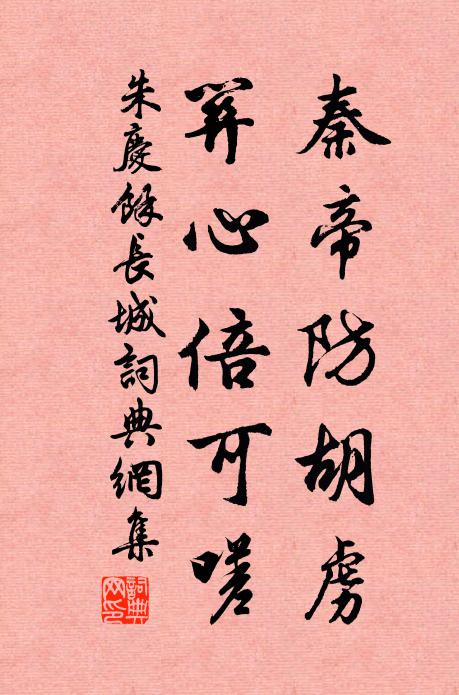 秦帝防胡虜
關心倍可嗟
朱慶餘長城詞典網集
詞典网印